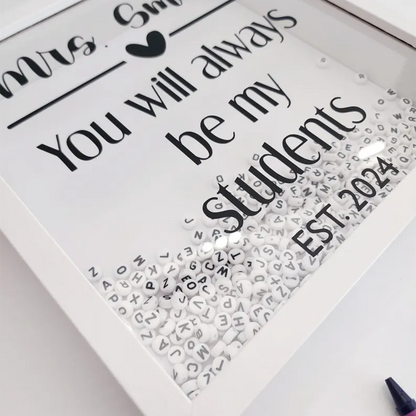 Mrs. Sm
You will always
be my
students
EST. 2024